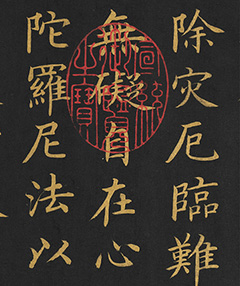 除灾厄臨難
無礙自在心
陀羅尼法以